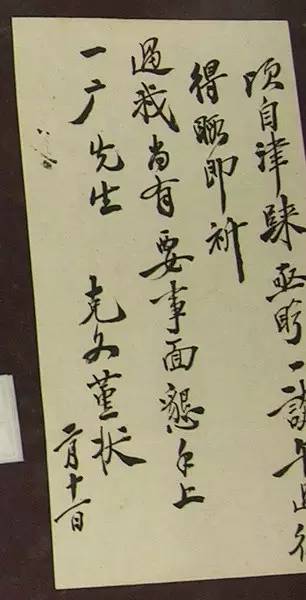 頃自津歸亟盼一談
得暇即祈
過我尚有要事面懇手上
一广先生 克文堇狀
二月十一日